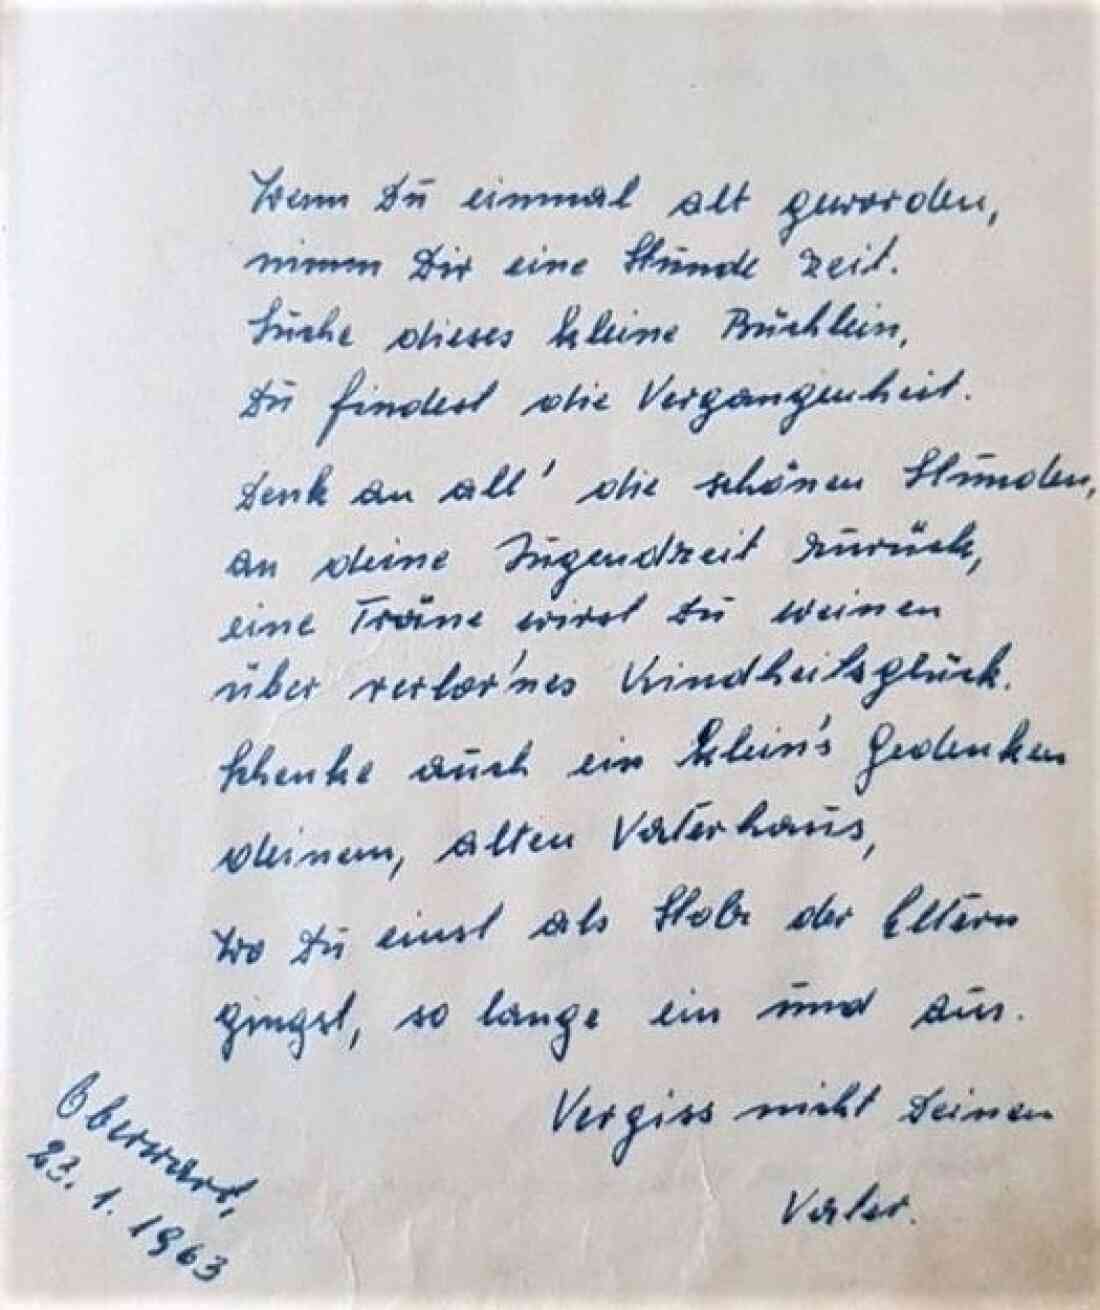 Wenn Du einmal alt geworden,
nimm Dir eine Stunde Zeit.
Suche dieses kleine Büchlein,
Du findest die Vergangenheit.
Denk an all' die schönen Stunden,
an deine Jugendzeit zurück,
eine Träne wirst Du weinen
über verlor'nes Kindheitsglück.
Schenke auch ein klein's Gedenken
deinem, alten Vaterhaus,
wo Du einst als Stolz der Eltern
gingst, so lange ein und aus.
Vergiss nicht Deinen
Vater.
Oberwart,
23. 1. 1963